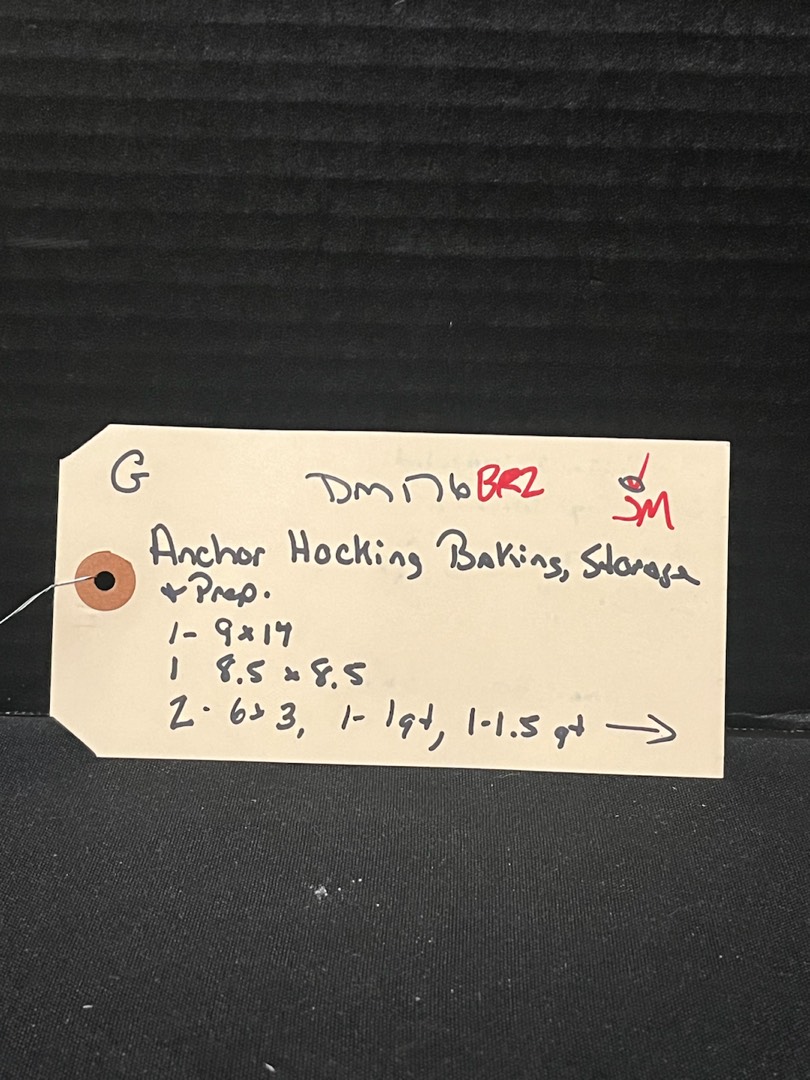 G DM176 BR2
JM
Anchor Hocking Baking, Storage
+ Prep.
1- 9x14
1 8.5 x 8.5
2- 6x3, 1- 1qt, 1-1.5 qt →